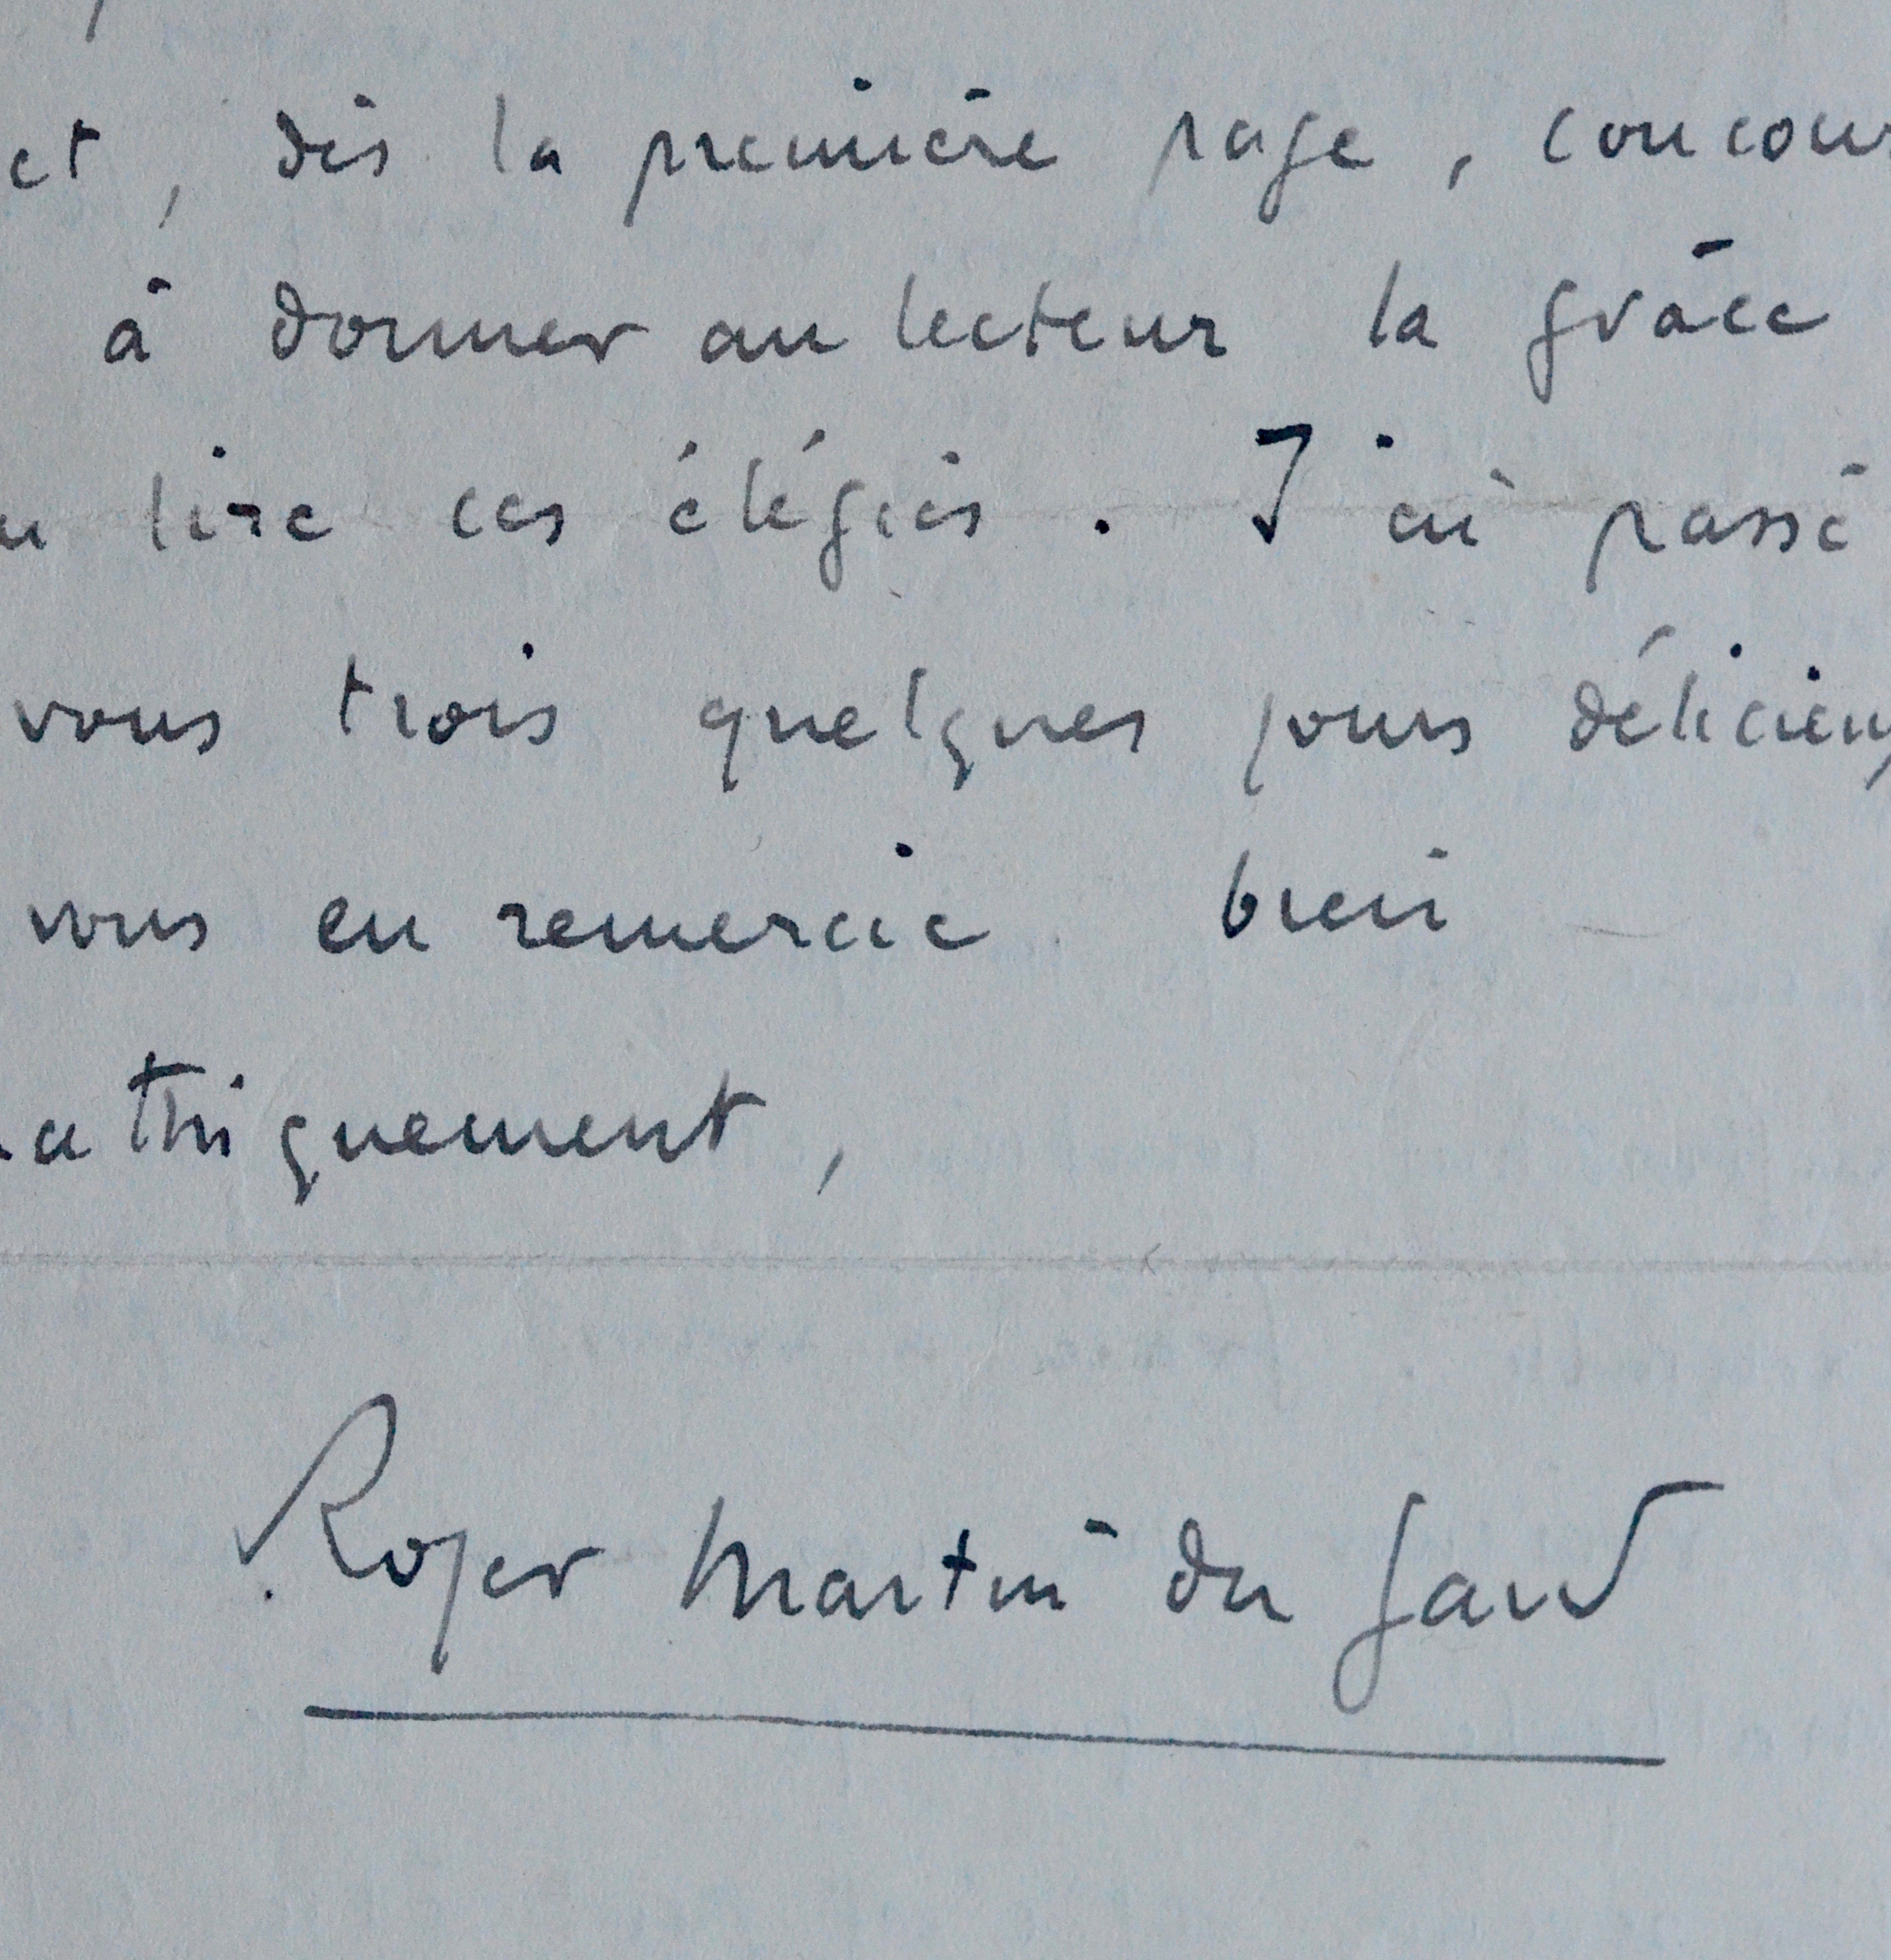 et, dès la première page, concour
à donner au lecteur la grâce
lire ces élégies. J'ai passé
vous trois quelques jours délicieux
vous en remercie bien
athiquement,
Roger Martin du Gard